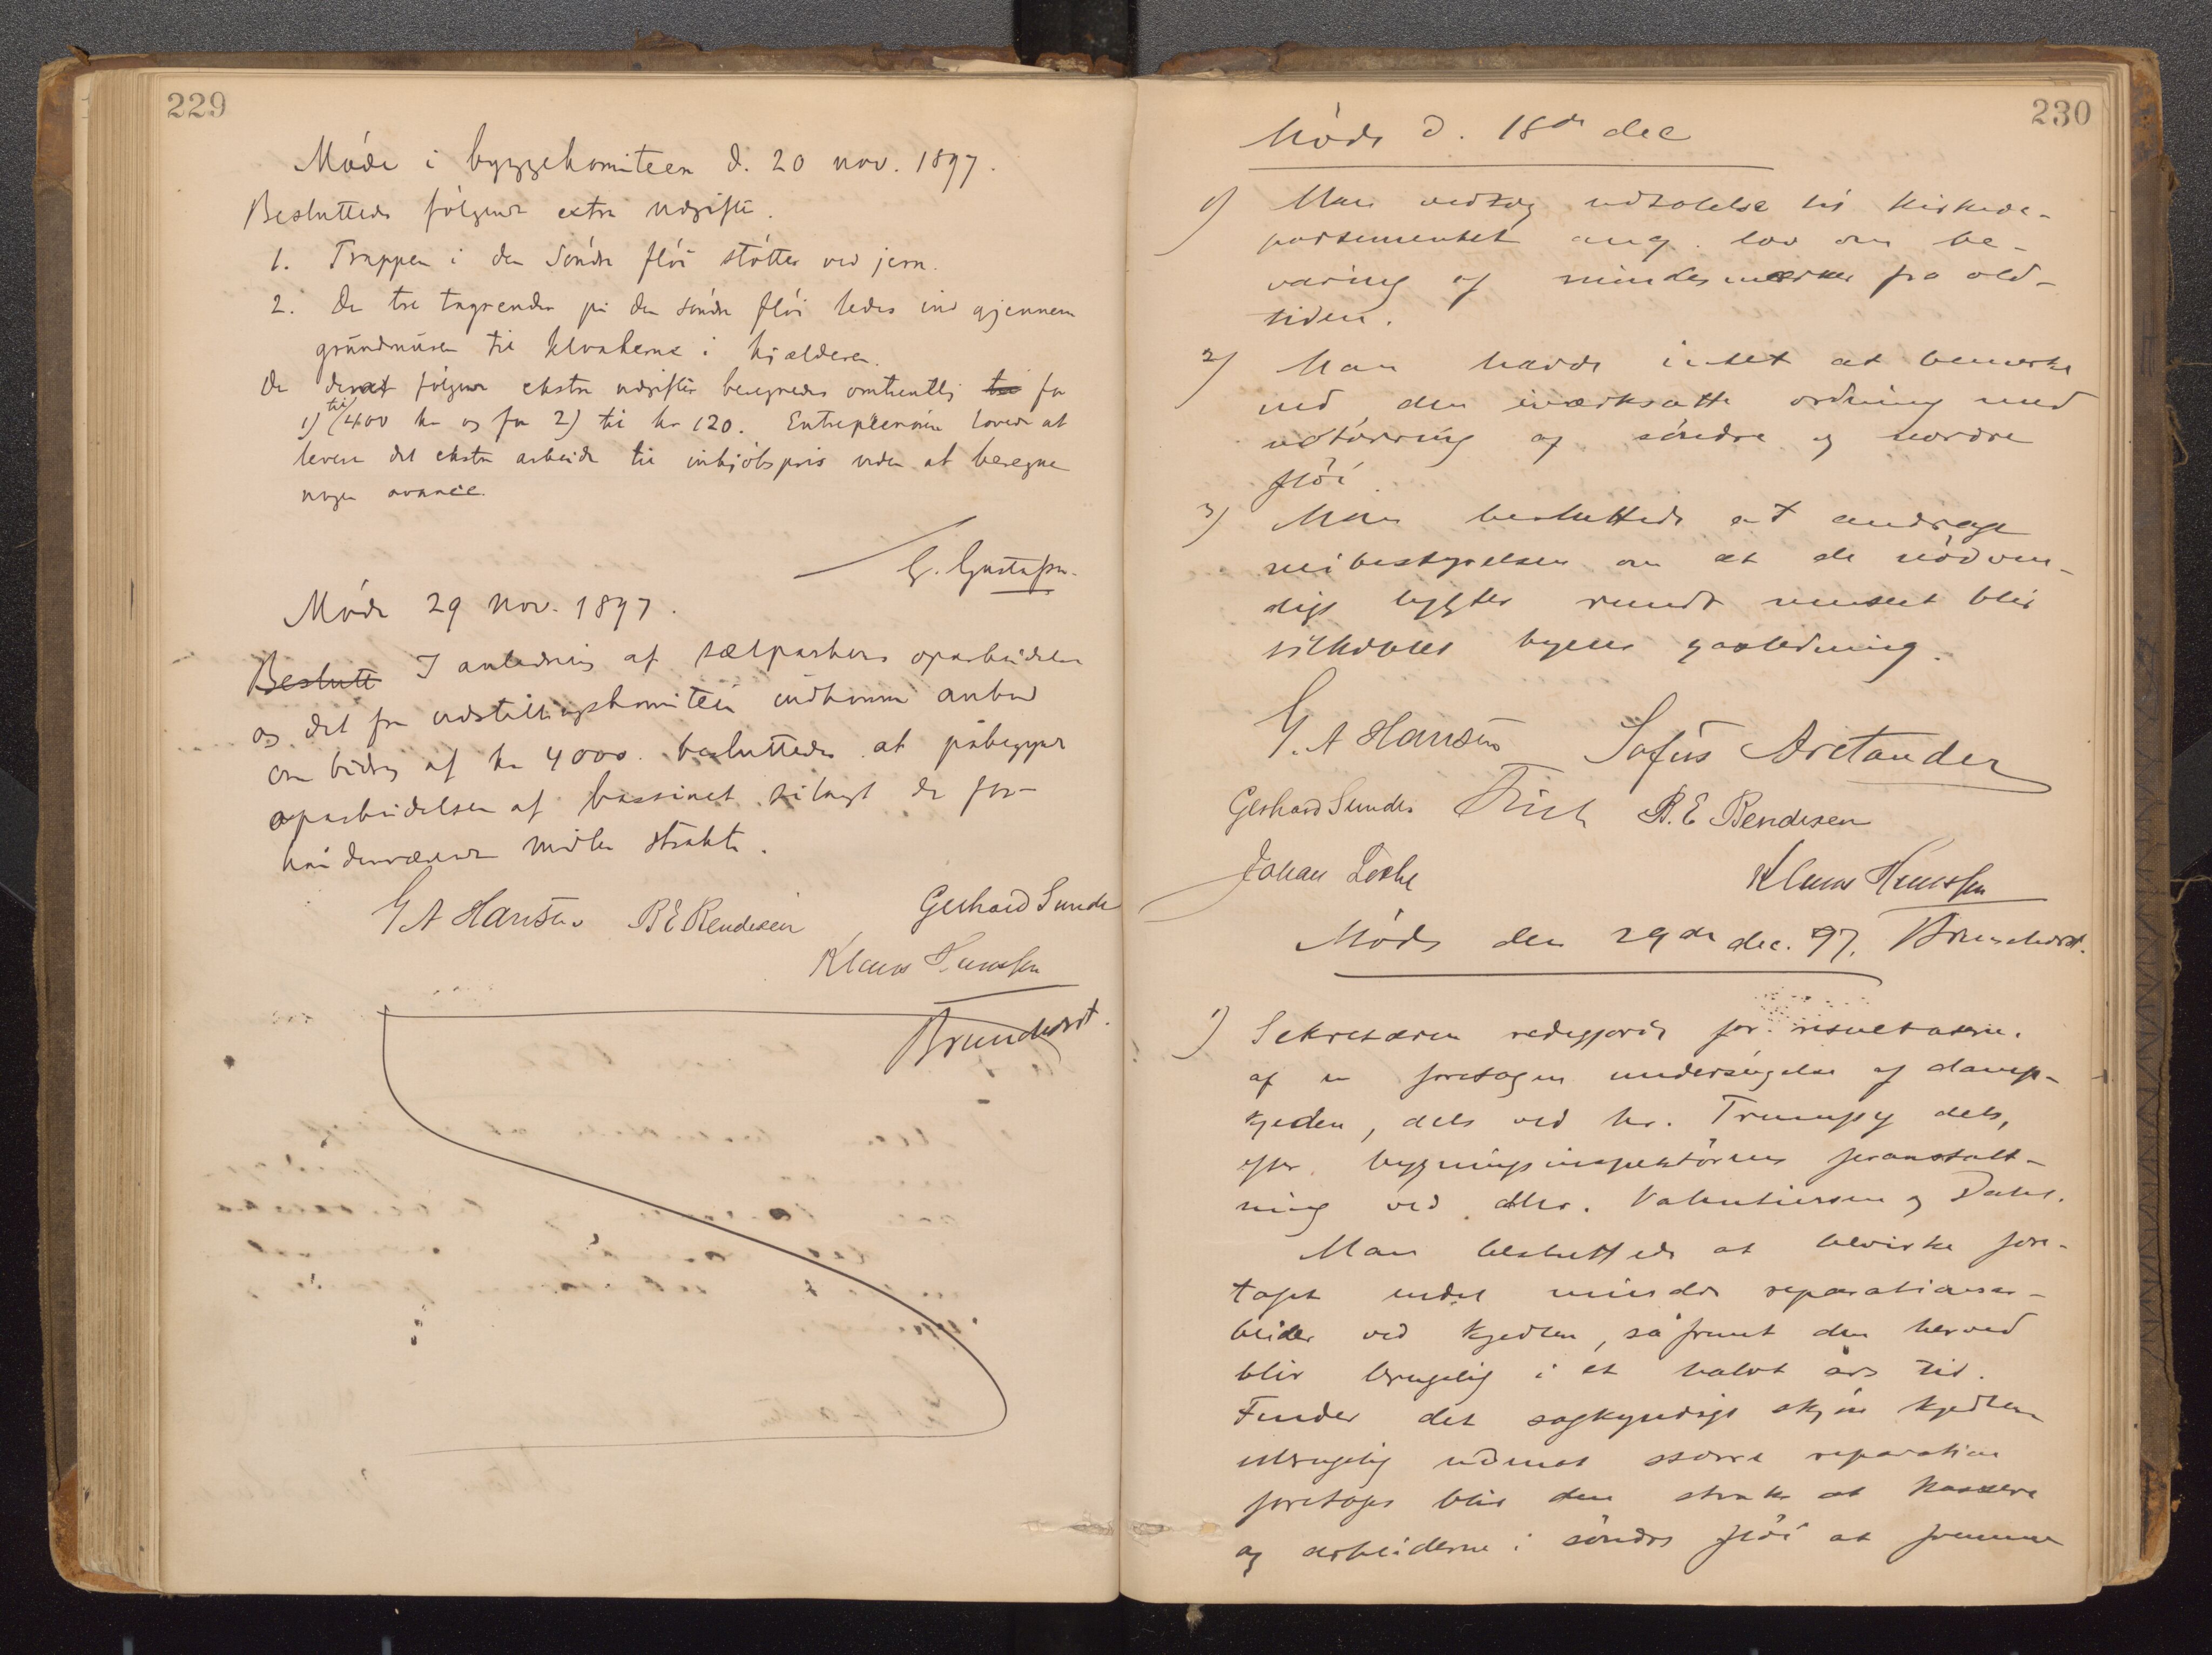 229
Møde i byggekomiteen d. 20 nov. 1897.
Besluttede følgende extra udgifter.
1. Trappen i den søndre fløi støttes ved jern.
2. De tre tagrender på den søndre fløi ledes ind gjennem
grundmuren til kloakerne i kjælderen.
De deraf følgende ekstra udgifter beregnedes omtrentlig for
1) til 400 kr og for 2) til kr 120. Entreprenøren lovede at
levere det ekstra arbeide til indkjøbspris uden at beregne
nogen avance.
G. Gustafson
Møde 29 nov. 1897.
Beslutt I anledning af sælparkens oparbeidelse
og det fra udstillingskomiteen indkomne anbud
om bidrag af kr 4000. besluttedes at påbegynde
oparbeidelsen af bassinet tillags de for-
håndenværende midler strakte.
G A Hansen B E Bendixen Gerhard Sunde
Klaus Hanssen
Brunchorst.
230
Møde d. 18de dec
1) Man vedtog udtalelse til kirkede-
partementet ang. lov om be-
varing af mindesmærker fra old-
tiden.
2) Man havde intet at bemerke
ved den iværksatte ordning med
udtørring af søndre og nordre
fløi.
3) Man besluttede at andrage
veibestyrelsen om at de nødven-
dige lygter rundt museet blir
tilkoblet byens gasledning.
G. A Hansen Sofus Arctander
Gerhard Sunde Friele B. E Bendixen
Johan Lothe Klaus Hanssen
Møde den 29de dec. 97. Brunchorst.
1) Sekretæren redegjorde for resultaterne
af en foretagen undersøgelse af damp-
kjedlen, dels ved hr. Trumpy dels,
efter bygningsinspektørens foranstalt-
ning ved dhr. Valentinsen og Dahl.
Man besluttede at bevirke fore-
taget endel mindre reparationsar-
beider ved kjedlen, såfremt den herved
blir brugelig i et halvt års tid.
Finder det sagkyndige skjøn kjedlen
ubrugelig uden at større reparation
foretages blir den straks at kassere
og arbeiderne i søndre fløi at fremme